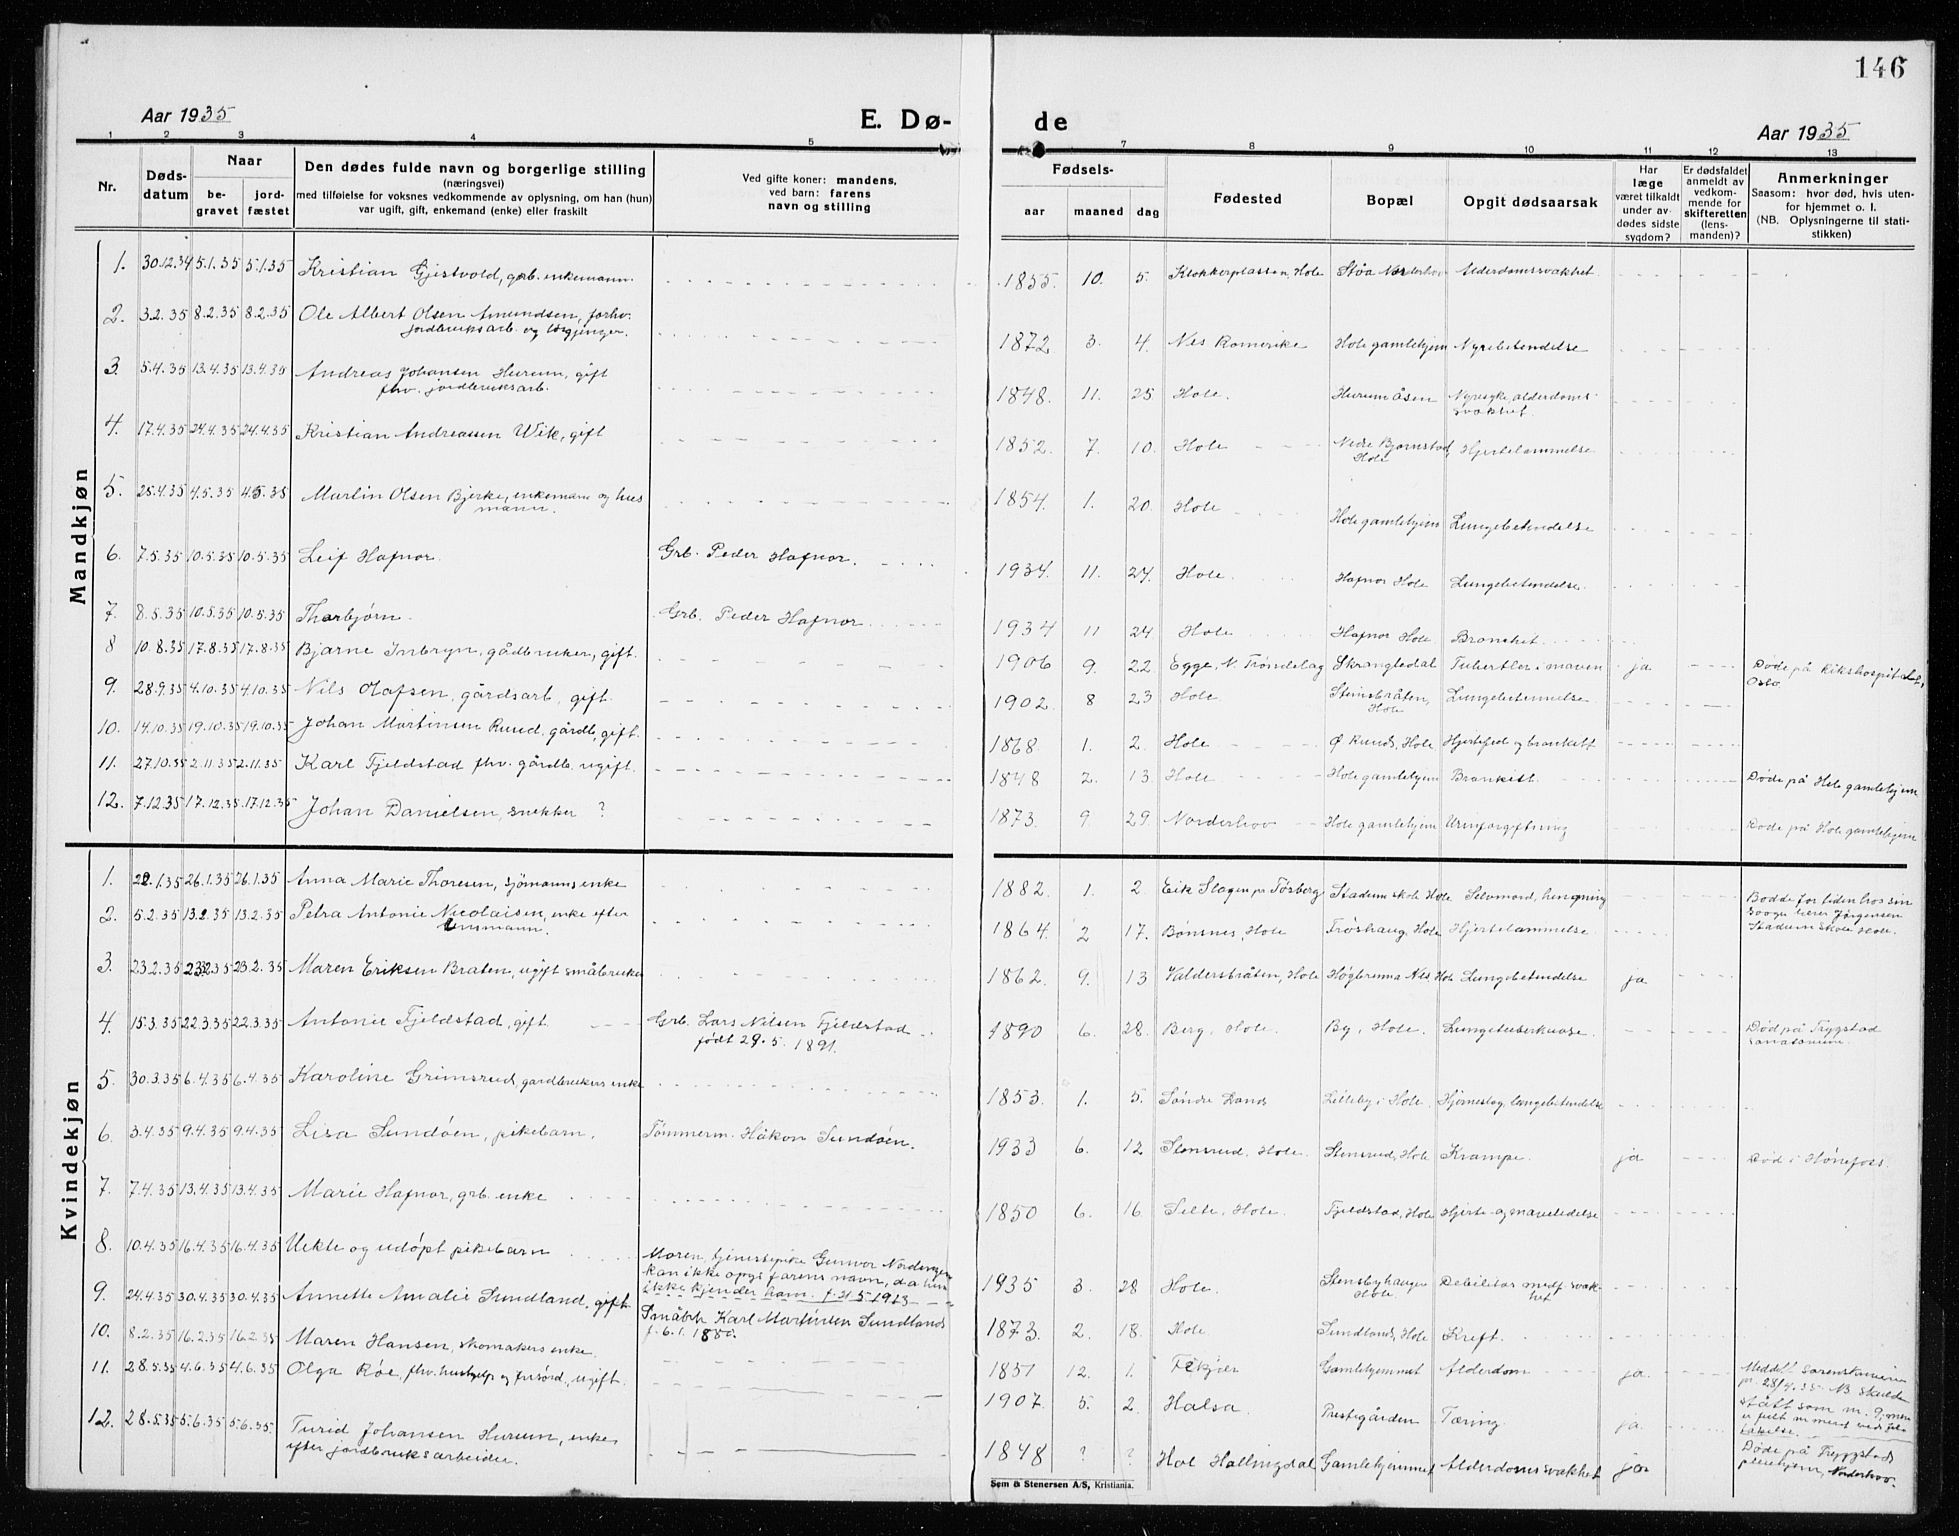 146
Aar 1935
E. Dø-
de
Aar 1935
1 2 3 4 5 7 8 9 10 11 12 13
Nr.
Dødsdatum
Naar
begravet
jordfæstet
Den dødes fulde navn og borgerlige stilling
(næringsvei)
med tilføielse for voksnes vedkommende av oplysning, om han (hun)
var ugift, gift, enkemand (enke) eller fraskilt
Ved gifte koner: mandens,
ved barn: farens
navn og stilling
Fødsels-
aar maaned dag
Fødested
Bopæl
Opgit dødsaarsak
Har
læge
været tilkaldt
under av-
dødes sidste
sygdom?
Er dødsfaldet
anmeldt av
vedkom-
mende for
skifteretten
(lens-
manden)?
Anmerkninger
Saasom: hvor død, hvis uten-
for hjemmet o. l.
(NB. Oplysningerne til stati-
stikken)
Mandkjøn
1. 30.12.34 5.1.35 5.1.35 Kristian Gjestvold, grb. enkemann. 1855. 10. 5. Klokkerplassen, Hole Støa Norderhov Alderdomssvakhet
2. 3.2.35 8.2.35 8.2.35 Ole Albert Olsen Amundsen, forhv.
jordbruksarb. og 1872 3. 4. Nes Romerike Hole gamlehjem Nyrebetendelse
3. 5.4.35 13.4.35 13.4.35 Andreas Johansen Hurum, gift
fhv. jordbruksarb. 1848. 11. 25 Hole. Hurumåsen Nyresyke, alderdoms-
svakhet.
4. 17.4.35 24.4.35 24.4.35 Kristian Andreassen Wik, gift 1852. 7. 10. Hole Nedre Bjørnstad, Hole Hjertelammelse
5. 25.4.35 4.5.35 4.5.35 Martin Olsen Bjerke, enkemann og hus
mann. 1854. 1. 20. Hole Hole gamlehjem Lungebetendelse
6. 7.5.35 10.5.35 10.5.35 Leif Hafnor. Grb. Peder Hafnor. 1934. 11. 24. Hole. Hafnor Hole Lungebetendelse.
7. 8.5.35 10.5.35 10.5.35 Thorbjørn. Grb. Peder Hafnor 1934 11 24 Hole Hafnor Hole Bronchit.
8 10.8.35 17.8.35 17.8.35 Bjarne Inbryn, gårdbruker, gift. 1906 9. 22 Egge, N. Trøndelag Skrangledal Tuberkler i maven ja Døde på Rikshospitalet,
Oslo.
9. 28.9.35 4.10.35 4.10.35 Nils Olafsen, gårdsarb, gift. 1902. 8 23 Hole Steinsbråten,
Hole Lungebetennelse.
10. 14.10.35 19.10.35 19.10.35 Johan Martinsen Rund, gårdb, gift. 1868. 1. 2. Hole Ø Rund, Hole Hjertefeil og bronkitt
11. 27.10.35 2.11.35 2.11.35 Karl Fjeldstad fhv. gårdb. ugift. 1848 2. 13 Hole Hole gamlehjem Bronkitt. Døde på Hole gamlehjem
12. 7.12.35 17.12.35. 17.12.35 Johan Danielsen, snekker ? 1873. 9. 29. Norderhov Hole gamlehjem Urinforgiftning Døde på Hole gamlehjem
Kvindekjøn
1. 22.1.35 26.1.35 26.1.35 Anna Marie Thoresen, sjömanns enke 1882. 1. 2. Eik Slagen pr Tøsberg Stadum skole Hole Selvmord, hengning Bodde for tiden hos sin
lærer Jørgensen
Stadum skole Hole.
2. 5.2.35 13.2.35 13.2.35 Petra Antonie Nicolaisen, enke efter
lensmann. 1864. 2 17. Bønsnes, Hole Frøshaug, Hole Hjertelammelse.
3. 23.2.35 23.2.35 23.2.35 Maren Eriksen Braten, ugift småbruker 1862. 9. 13 Valdersbråten, Hole Høgbrenna Nes, Hole Lungebetendelse ja
4. 15.3.35 22.3.35 22.3.35 Antonie Fjeldstad, gift Grb. Lars Nilsen Fjeldstad
født 29.5.1891. 1890 6. 28. Berg, Hole. By, Hole. Lungetuberkulose. Død på Trygstad
sanatorium.
5. 30.3.35 6.4.35 6.4.35 Karoline Grimsrud, gardbrukers enke 1853. 1. 5. Søndre Land Lilleby i Hole. Hjerneslag, lungebetendelse
6. 3.4.35 9.4.35 9.4.35 Lisa Sundøen, pikebarn. Tømmerm. Håkon Sundøen. 1933 6. 12 Stensrud, Hole. Stensrud, Hole Krampe. ja Død i Hønefoss.
7. 7.4.35 13.4.35 13.4.35 Marie Hafnor, grb. enke 1850 6. 16 Selte, Hole. Fjeldstad, Hole Hjerte- og mavelidelse
8. 10.4.35 16.4.35 16.4.35 Uekte og udöpt pikebarn Moren, tjenestepike Gunvor Nordengen
kan ikke opgi farens navn, da hun
ikke kjender ham. f. 21.5.1913 1935 3. 28 Hole. Stensbyhaugen
Hole. Debilitas medf svak-
het
9. 24.4.35 30.4.35 30.4.35 Annette Amalie Sundland, gift Småbr. Karl Martinsen Sundland
f. 6.1.1880. 1873. 2. 18. Hole Sundland, Hole Kreft.
10. 8.2.35 16.2.35 16.2.35 Maren Hansen, skomakers enke. 1851 12. 1. Gamlehjemmet Alderdom ja Meddelt sorenskriveren
pr. 28/4.35. NB skulde
stått som nr. 9, men
11. 28.5.35 4.6.35 4.6.35 Olga Røe, fhv. hushjelp og frisörd., ugift. 1907. 5. 2. Halsa. Prestegården Tæring ja.
12. 28.5.35 5.6.35 5.6.35. Turid Johansen Hurum, enke
efter jordbruksarbeider. 1848 ? ? Hol Hallingdal Gamlehjemmet Alderdomssvakhet ja Døde på Tryggstad
pleiehjem, Norderhov.
Sem & Stenersen A/S, Kristiania.